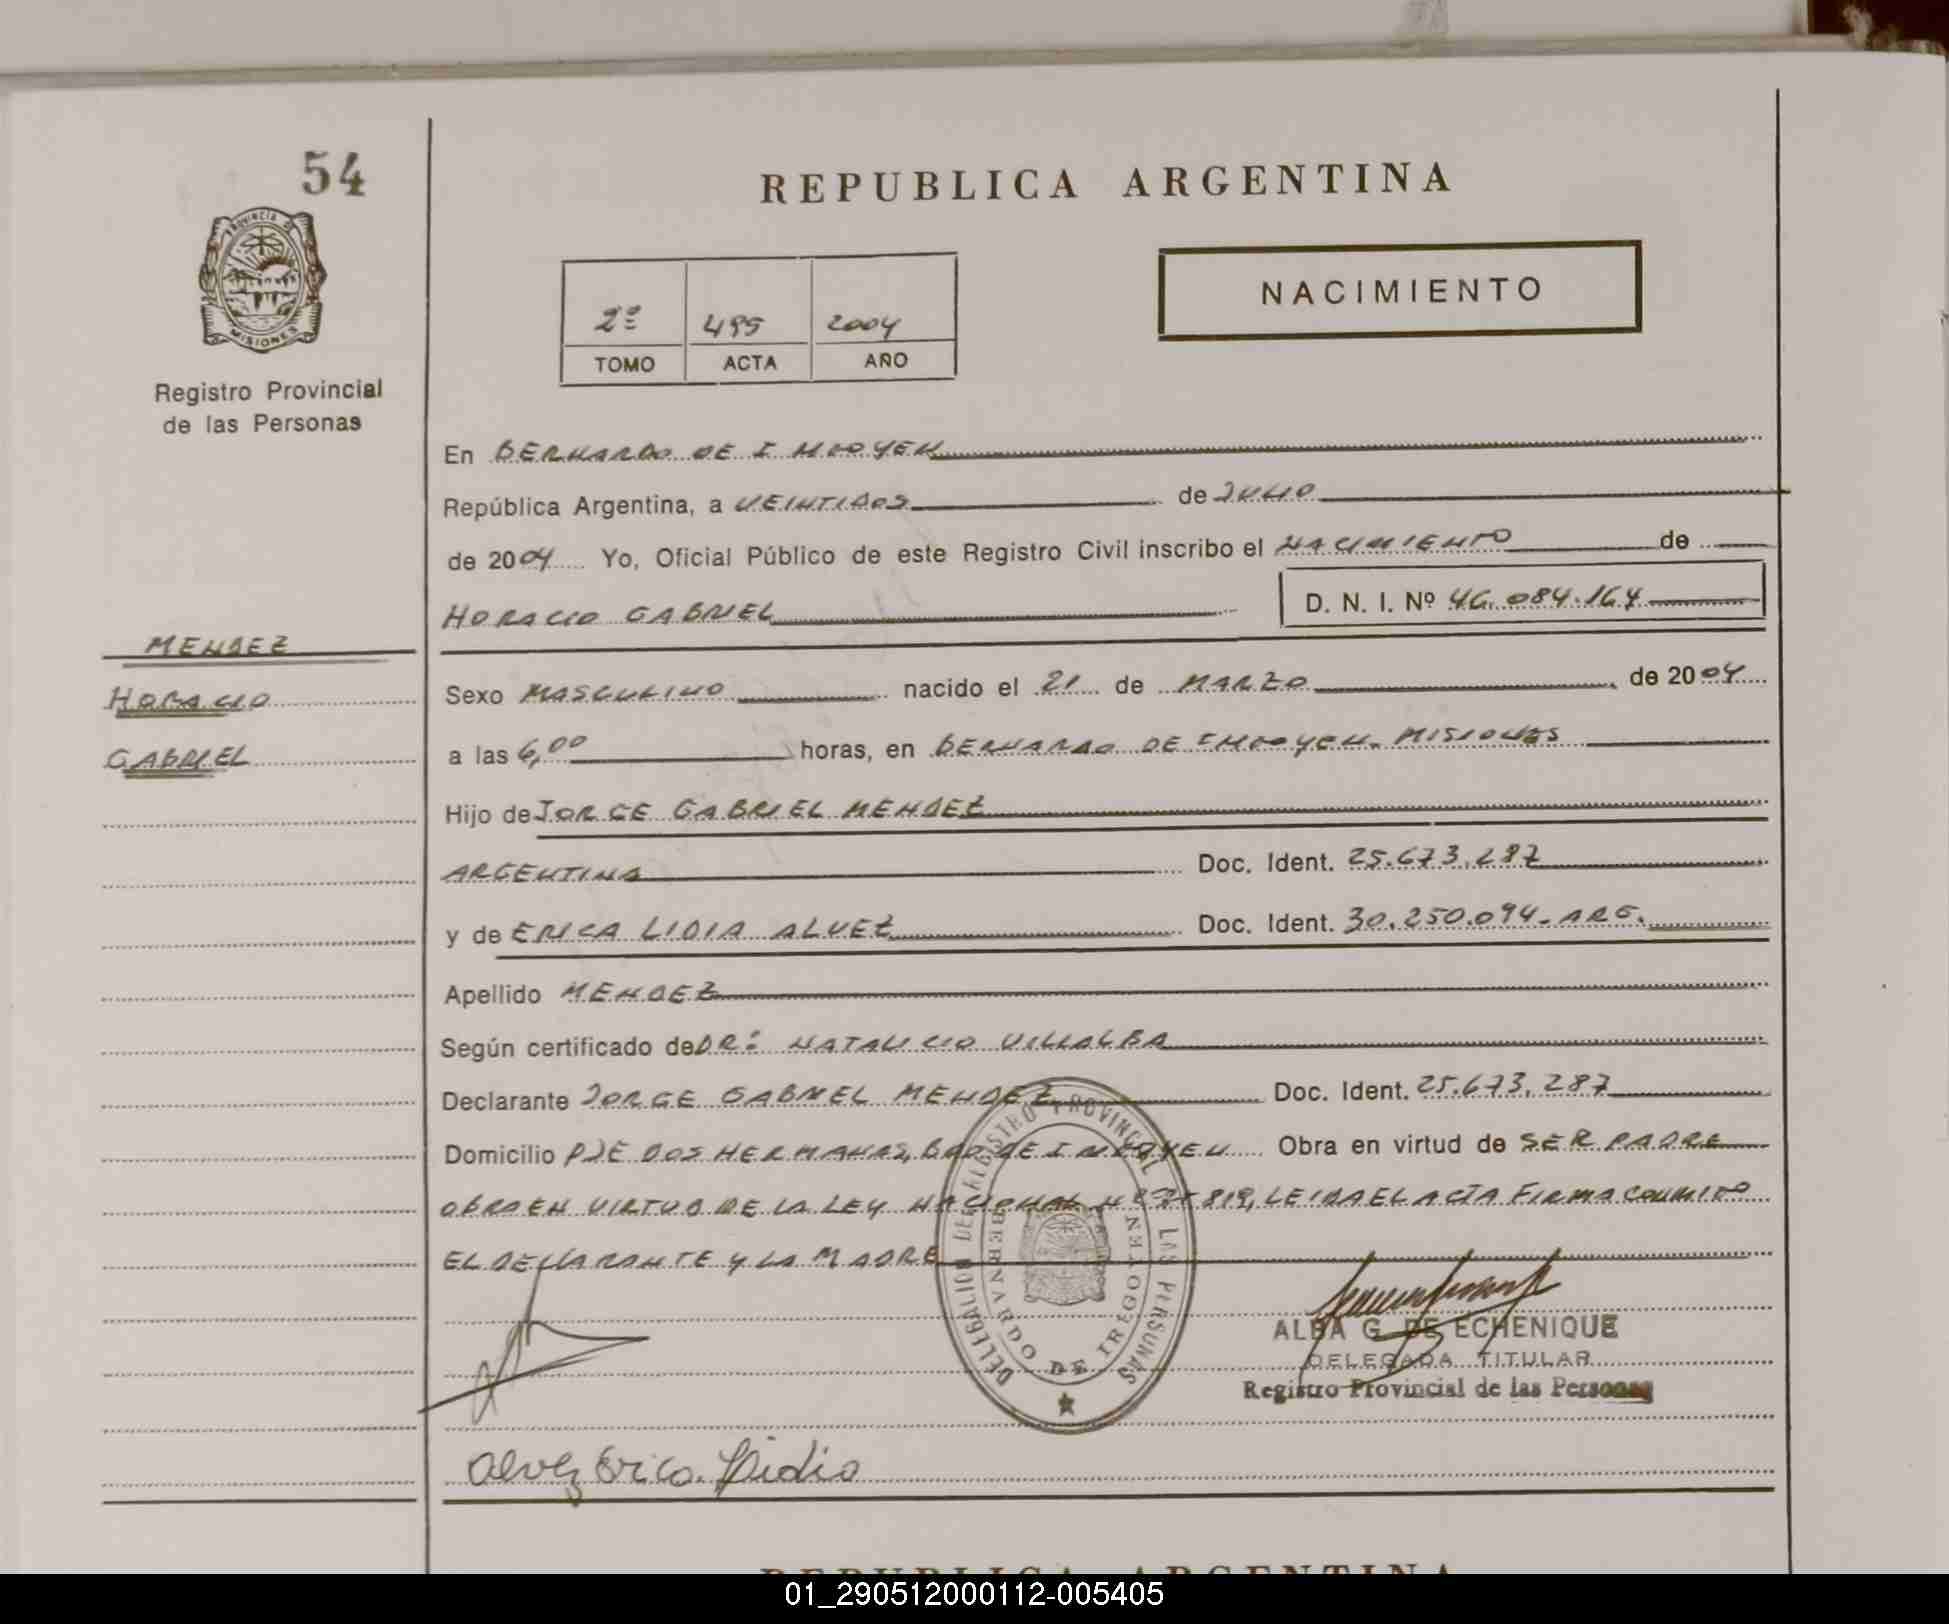 54
REPUBLICA ARGENTINA
PROVINCIA DE
MISIONES
NACIMIENTO
2º 495 2004
TOMO ACTA AÑO
Registro Provincial
de las Personas
En BERNARDO DE IRIGOYEN
República Argentina, a VEINTIDOS de JULIO
de 2004 Yo, Oficial Público de este Registro Civil inscribo el NACIMIENTO de
HORACIO GABRIEL D. N. I. Nº 46.084.164
MENDEZ
HORACIO
GABRIEL
Sexo MASCULINO nacido el 21 de MARZO de 2004
a las 6,00 horas, en BERNARDO DE IRIGOYEN. MISIONES
Hijo de JORGE GABRIEL MENDEZ
ARGENTINA Doc. Ident. 25.673.287
y de ERICA LIDIA ALVEZ Doc. Ident. 30.250.094-ARG.
Apellido MENDEZ
Según certificado de DR: NATALICIO VILLALBA
Declarante JORGE GABRIEL MENDEZ Doc. Ident. 25.673.287
Domicilio PJE DOS HERMANAS, BDO DE IRIGOYEN Obra en virtud de SER PADRE
OBRA EN VIRTUD DE LA LEY NACIONAL Nº 819, LEIDA EL ACTA FIRMA CONMIGO
EL DECLARANTE Y LA MADRE
DELEGACION DEL REGISTRO PROVINCIAL DE LAS PERSONAS
BERNARDO DE IRIGOYEN
ALBA G. DE ECHENIQUE
DELEGADA TITULAR
Registro Provincial de las Personas
Alvez Erica Lidia
REPUBLICA ARGENTINA
01_290512000112-005405